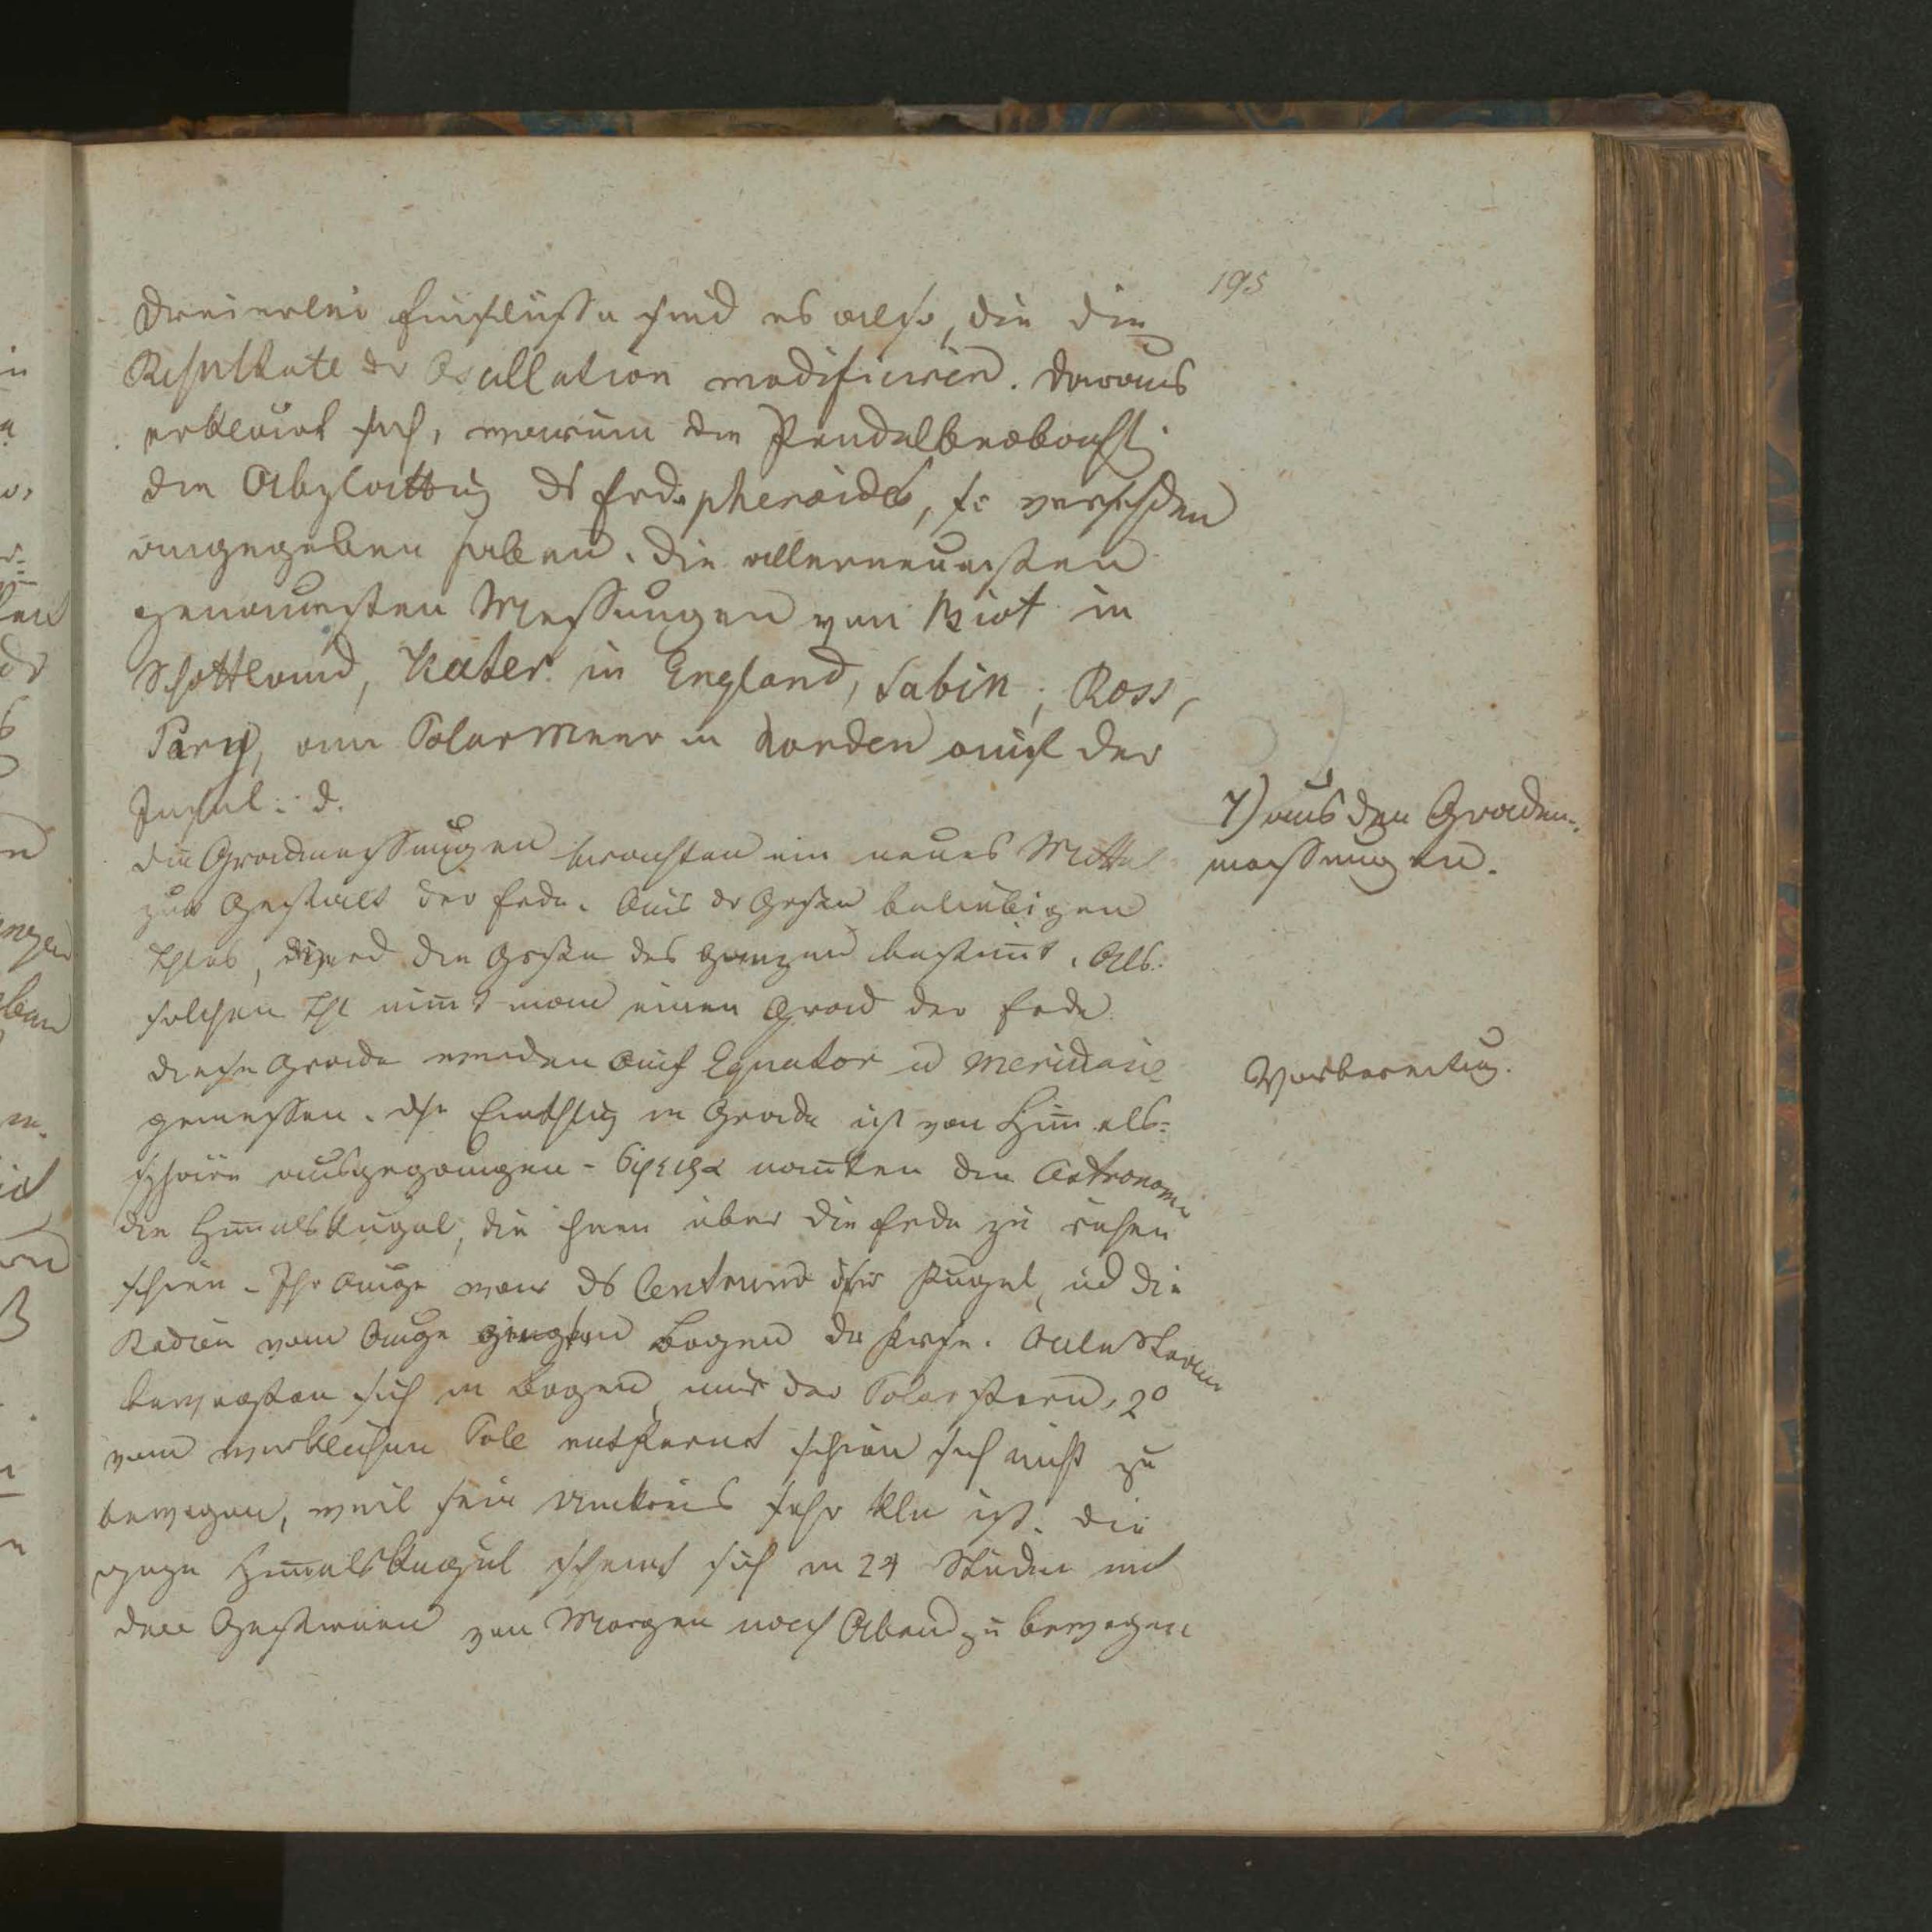 195
Dreierlei Einflüsse sind es also, die die
Resultate der Oscillation modificiren. Daraus
erklärt sich, warum die Pendelbeobacht.
die Abplattung ds Erdspheroides, so verschden
angegeben haben. Die allerneuesten
genauesten Messungen von Biot in
Schottland, Kater in England, Sabin, Ross,
Pary, am Polarmeer in Norden auf der
Insel: d.
7) aus den Graden-
messungen.
die Gradmessungen brachten ein neues Mittel
zur Gestalt der Erde. Aus dr Größe beliebigen
Thles, wird die Größe des Ganzen bestim̅t. Als
solchen Thl nim̅t man einen Grad der Erde.
Vorbereitug.
diese Grade werden auf Equator u Meridane
gemessen. Die Einthlug in Grade ist von Him̅els-
sphäre ausgegangen - σφαιρα nan̅ten die Astronome
die Him̅elskugel, die ihnen über die Erde zu ruhen
schien - Ihr Auge war ds Centrum dsr Kugel, ud die
Radien vom Auge Bogen der Kreise. Alle Sterne
bewegten sich in Bogen nur der Polarstern, 2°
vom wirklichen Pole entfernt schien sich nicht zu
bewegen, weil sein Umkreis sehr kln ist. die
gaze Him̅elskugel scheint sich in 24 Studen mit
den Gestirnen von Morgen nach Abend zu bewegen